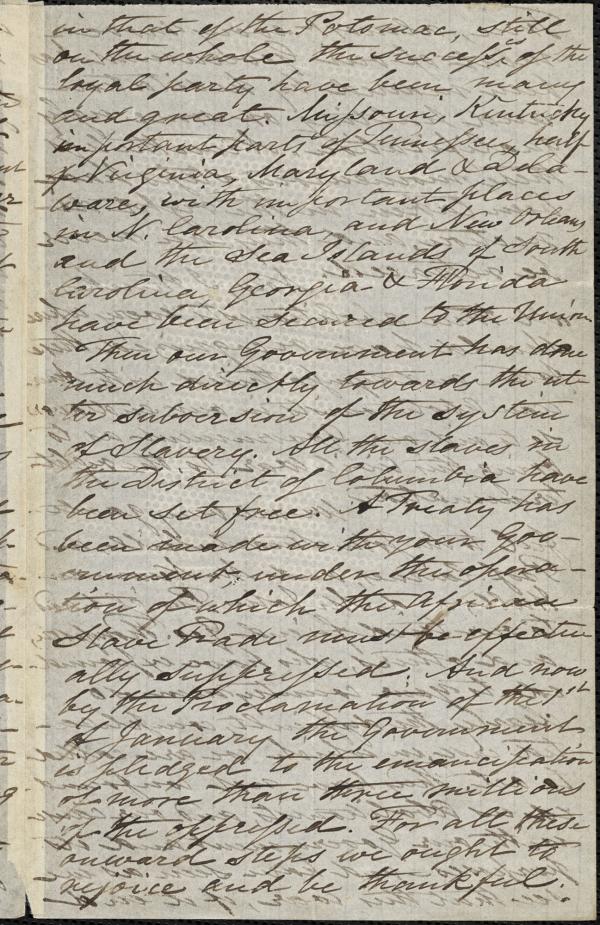 in that of the Potomac, still
on the whole the success, of the
loyal party have been many
and great. Missouri, Kentucky
important parts of Tennessee, half
of Virginia, Maryland & Dela-
ware, with important places
in N. Carolina, and New Orleans
and the Sea Islands of South
Carolina, Georgia & Florida
have been secured to the Union
Then our Government has done
much directly towards the ut-
ter subversion of the system
of Slavery. All the slaves in
the District of Columbia have
been set free. A Treaty has
been made with your Gov-
ernment under the opera-
tion of which the African
Slave Trade must be effectu
ally suppressed; And now
by the Proclamation of the 1st
of January the Government
is pledged to the emancipation
of more than three millions
of the oppressed. For all these
onward steps we ought to
rejoice and be thankful.